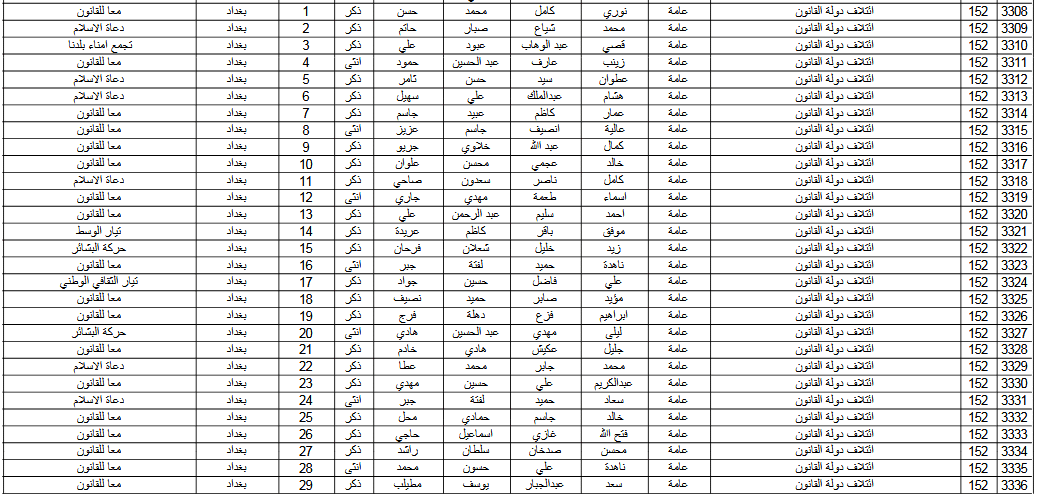 3308 152 ائتلاف دولة القانون عامة نوري كامل محمد حسن ذكر 1 بغداد معا للقانون
3309 152 ائتلاف دولة القانون عامة محمد شياع صبار حاتم ذكر 2 بغداد دعاة الاسلام
3310 152 ائتلاف دولة القانون عامة قصي عبد الوهاب عبود علي ذكر 3 بغداد تجمع امناء بلدنا
3311 152 ائتلاف دولة القانون عامة زينب عارف عبد الحسين حمود انثى 4 بغداد معا للقانون
3312 152 ائتلاف دولة القانون عامة عطوان سيد حسن ثامر ذكر 5 بغداد دعاة الاسلام
3313 152 ائتلاف دولة القانون عامة هشام عبدالملك علي سهيل ذكر 6 بغداد دعاة الاسلام
3314 152 ائتلاف دولة القانون عامة عمار كاظم عبيد جاسم ذكر 7 بغداد معا للقانون
3315 152 ائتلاف دولة القانون عامة عالية انصيف جاسم عزيز انثى 8 بغداد معا للقانون
3316 152 ائتلاف دولة القانون عامة كمال عبد الله خلاوي جريو ذكر 9 بغداد معا للقانون
3317 152 ائتلاف دولة القانون عامة خالد عجمي محسن علوان ذكر 10 بغداد معا للقانون
3318 152 ائتلاف دولة القانون عامة كامل ناصر سعدون صاحي ذكر 11 بغداد دعاة الاسلام
3319 152 ائتلاف دولة القانون عامة اسماء طعمة مهدي جاري انثى 12 بغداد معا للقانون
3320 152 ائتلاف دولة القانون عامة احمد سليم عبد الرحمن علي ذكر 13 بغداد معا للقانون
3321 152 ائتلاف دولة القانون عامة موفق باقر كاظم عريدة ذكر 14 بغداد تيار الوسط
3322 152 ائتلاف دولة القانون عامة زيد خليل شعلان فرحان ذكر 15 بغداد حركة البشائر
3323 152 ائتلاف دولة القانون عامة ناهدة حميد لفتة جبر انثى 16 بغداد معا للقانون
3324 152 ائتلاف دولة القانون عامة علي فاضل حسين جواد ذكر 17 بغداد تيار الثقافي الوطني
3325 152 ائتلاف دولة القانون عامة مؤيد صابر حميد نصيف ذكر 18 بغداد معا للقانون
3326 152 ائتلاف دولة القانون عامة ابراهيم فزع دهلة فرج ذكر 19 بغداد معا للقانون
3327 152 ائتلاف دولة القانون عامة ليلى مهدي عبد الحسين هادي انثى 20 بغداد حركة البشائر
3328 152 ائتلاف دولة القانون عامة جليل عكيش هادي خادم ذكر 21 بغداد معا للقانون
3329 152 ائتلاف دولة القانون عامة محمد جابر محمد عطا ذكر 22 بغداد دعاة الاسلام
3330 152 ائتلاف دولة القانون عامة عبدالكريم علي حسين مهدي ذكر 23 بغداد معا للقانون
3331 152 ائتلاف دولة القانون عامة سعاد حميد لفتة جبر انثى 24 بغداد دعاة الاسلام
3332 152 ائتلاف دولة القانون عامة خالد جاسم حمادي محل ذكر 25 بغداد معا للقانون
3333 152 ائتلاف دولة القانون عامة فتح الله غازي اسماعيل حاجي ذكر 26 بغداد معا للقانون
3334 152 ائتلاف دولة القانون عامة محسن صدخان سلطان راشد ذكر 27 بغداد معا للقانون
3335 152 ائتلاف دولة القانون عامة ناهدة علي حسون محمد انثى 28 بغداد معا للقانون
3336 152 ائتلاف دولة القانون عامة سعد عبدالجبار يوسف مطيلب ذكر 29 بغداد معا للقانون